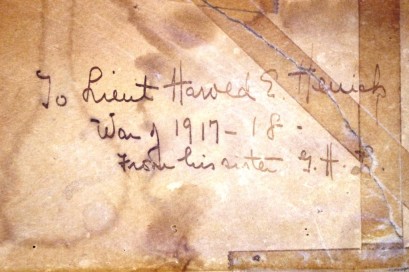 To Lieut Harold E. Herrick
War of 1917-18.
From his sister G. H. P.